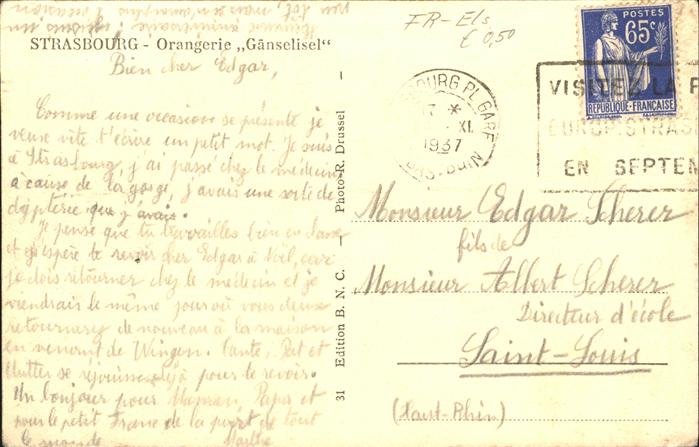 STRASBOURG - Orangerie „Gänselisel"
Bien cher Edgar,
Comme une occasion se présente je
veux vite t'écrire un petit mot. Je suis
à Strasbourg, j'ai passé chez le médecin
à cause de la gorge, j'avais une sorte de
dyptérie que j'avais.
Je pense que tu travailles bien en classe
et j'espère te revoir cher Edgar à Noël, car
je dois retourner chez le médecin et je
viendrais le même jour où vous deux
retournerez de nouveau à la maison
en venant de Wingen. Tante, Pat et
Mutter se réjouissent déjà pour le revoir.
Un bonjour pour Maman, Papa et
pour le petit Franc de la part de tout
le monde
Marthe
31 Edition B. N. C. — Photo-R. Drussel —
FR-Els
€ 0,50
POSTES
65c
RÉPUBLIQUE FRANÇAISE
BOURG PL. GARE
XI
1937
BAS-RHIN
VISITEZ LA F
EUROP. STRAS
EN SEPTEM
Monsieur Edgar Scherer
fils de
Monsieur Albert Scherer
Directeur d'école
Saint-Louis
(Haut-Rhin)